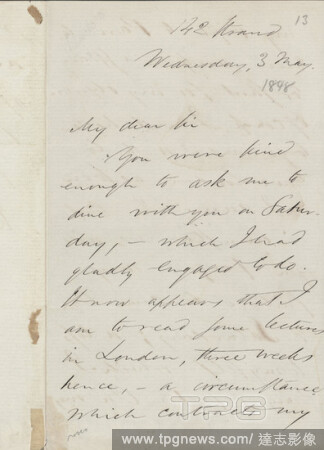 13
142 Strand
Wednesday, 3 May.
1848
My dear Sir
You were kind
enough to ask me to
dine with you on Satur-
day, – which I had
gladly engaged to do.
It now appears that I
am to read some lectures
in London, three weeks
hence, – a circumstance
which contracts my
TPG
www.tpgnews.com/達志影像